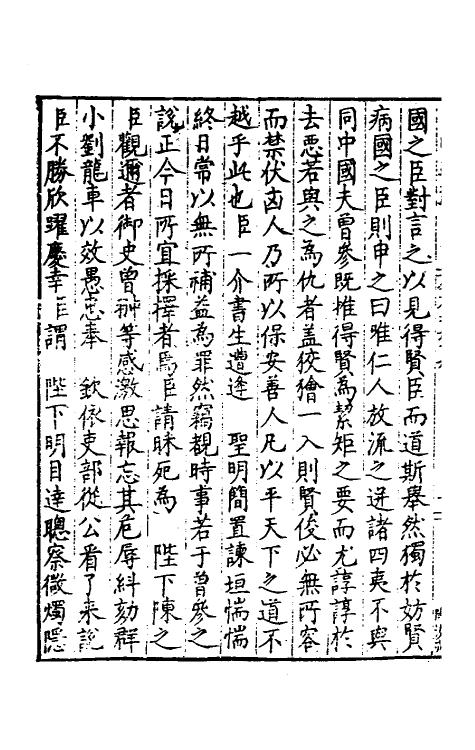 國之臣對言之以見得賢臣而道斯舉然獨於妨賢
病國之臣則申之曰唯仁人放流之迸諸四夷不與
同中國夫曾參既推得賢為絜矩之要而尤諄諄於
去惡若與之為仇者盖狡獪一入則賢俊必無所容
而禁伏凶人乃所以保安善人凡以平天下之道不
越乎此也臣一介書生遭逢　聖明簡置諫垣惴惴
終日常以無所補益為罪然竊覩時事若于曾參之
說正今日所宜採擇者焉臣請昧死為　陛下陳之
臣觀邇者御史曾翀等感激思報忘其危辱糾劾群
小劉龍車以效愚忠奉　欽依吏部從公看了来說
臣不勝欣躍慶幸臣謂　陛下明目達聰察微燭隱